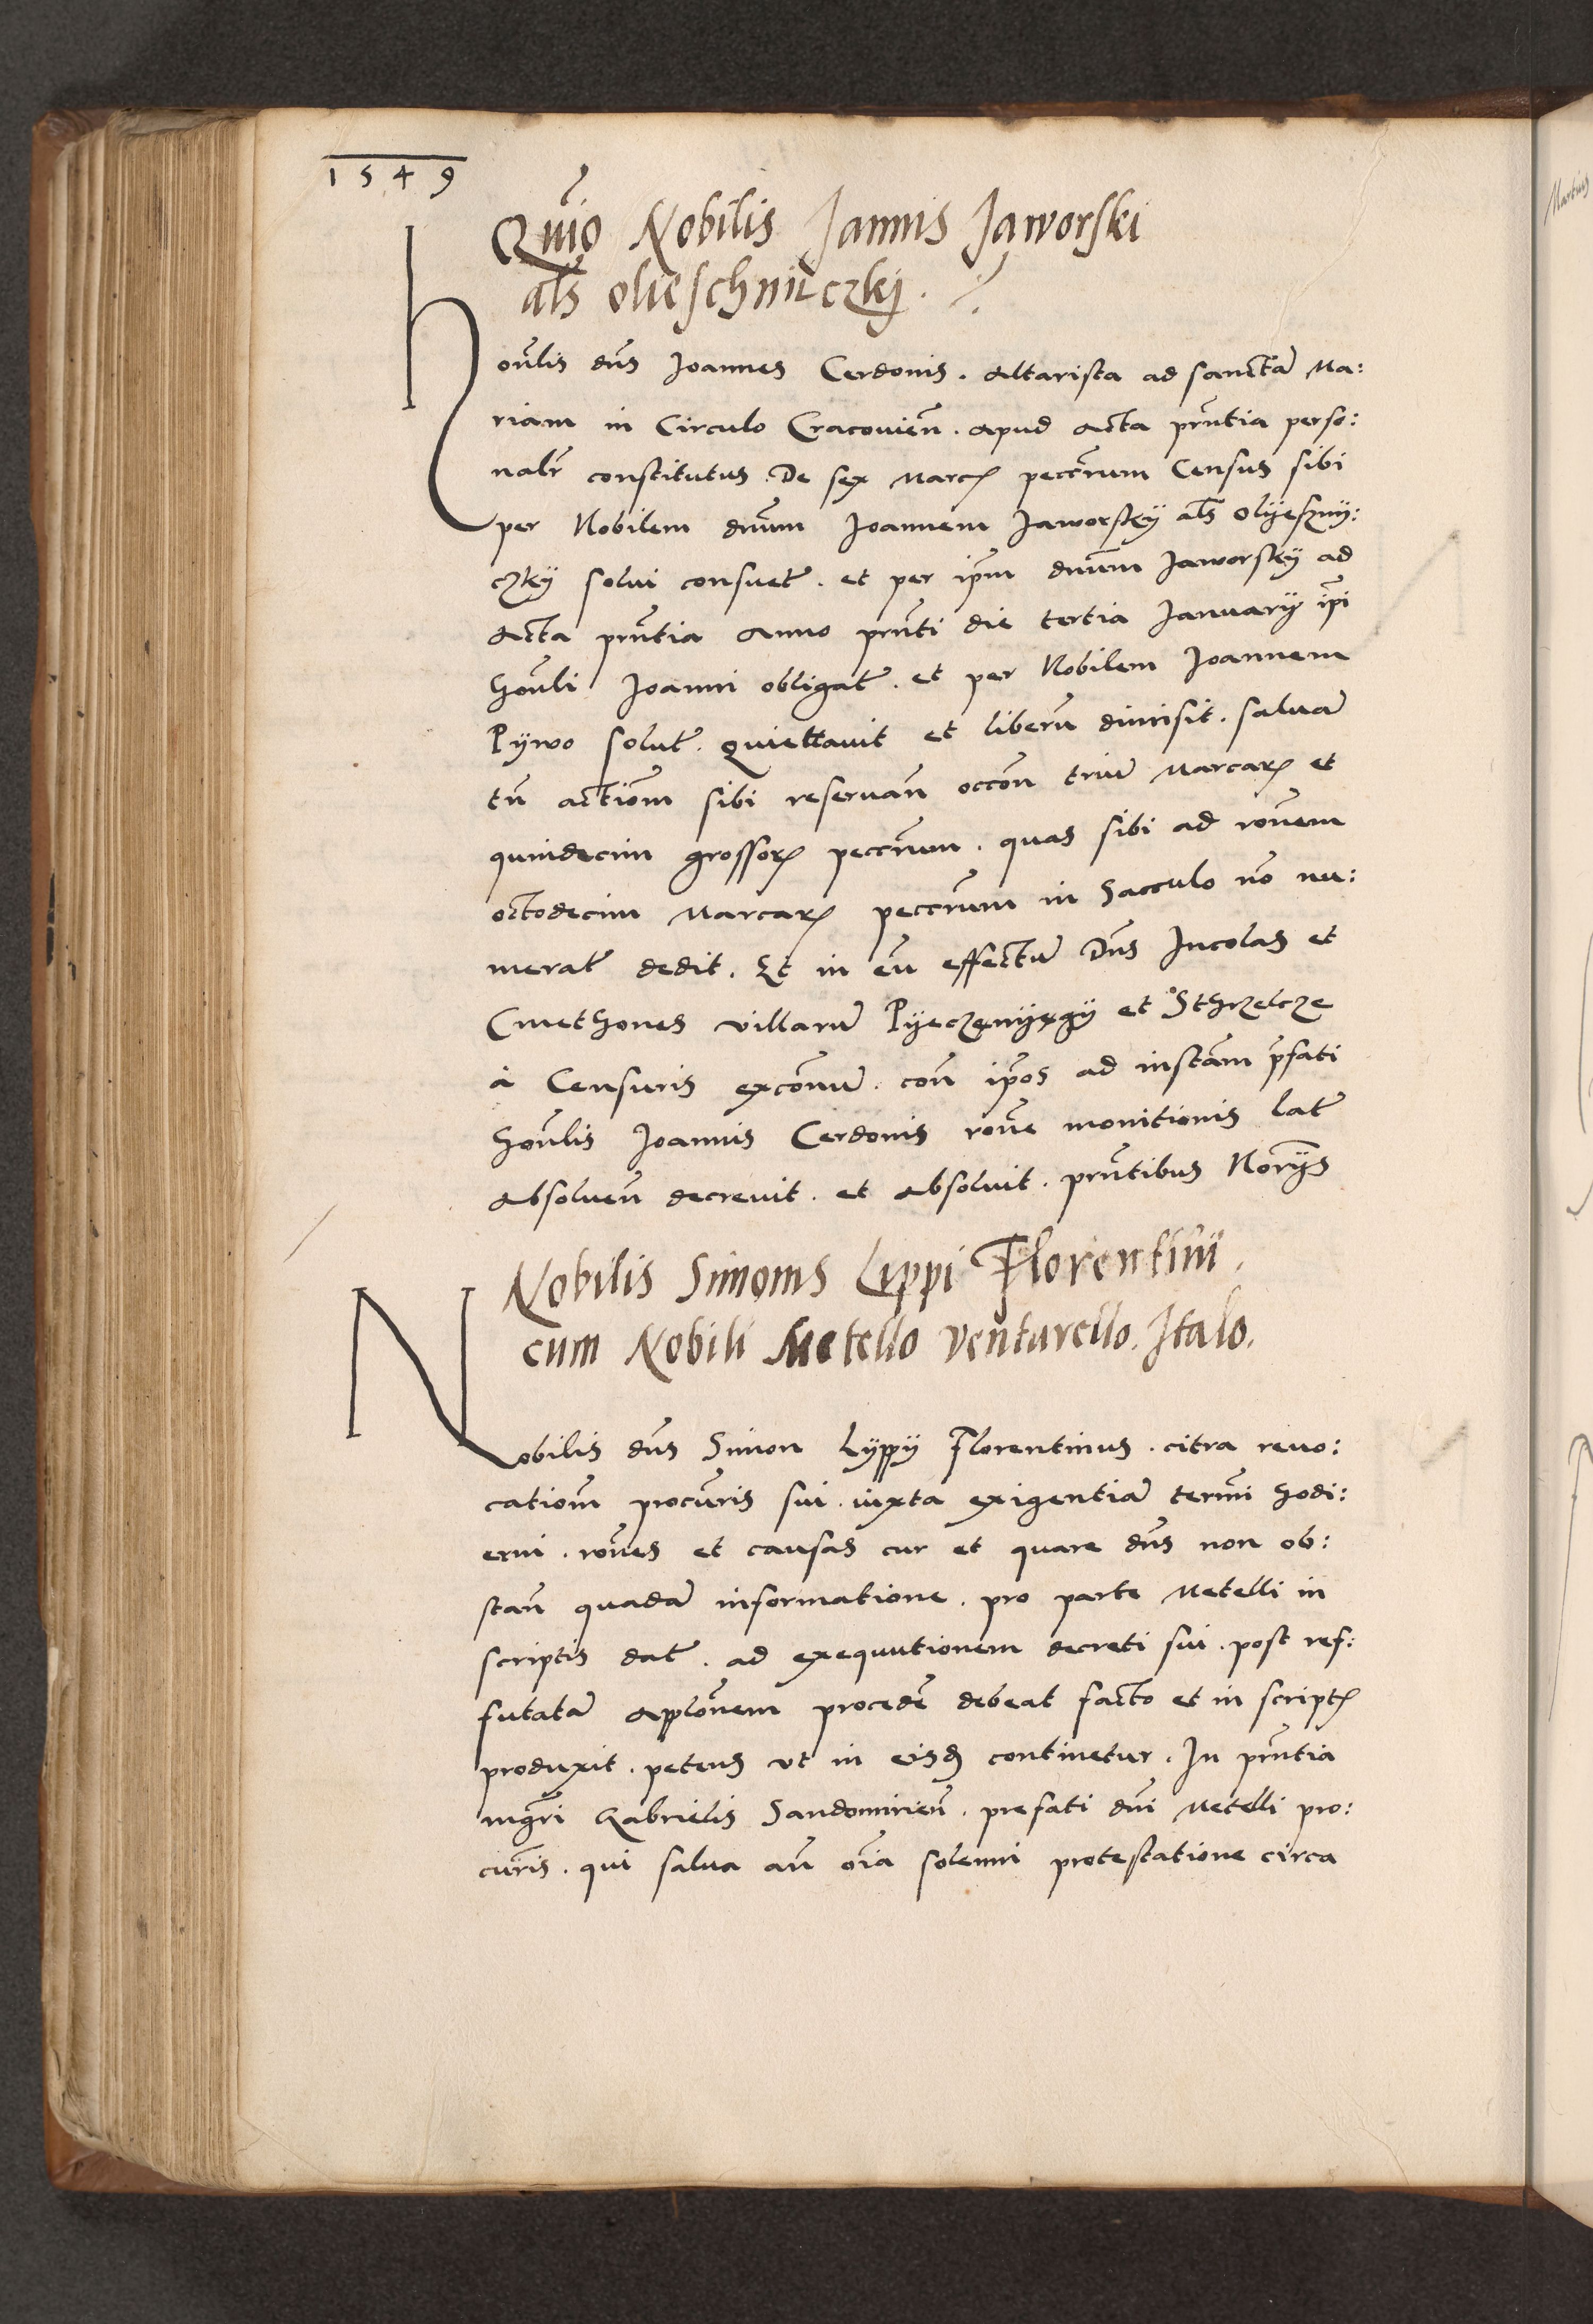 1549
Quio Nobilis Joannis Jaworski
als olieschniczkj
Honlis dns Joannes Cerdonis. Altarista ad sanctā Ma:
riam in Circulo Cracovien̄. apud Acta prntia perso:
nalr constitutus. De sex Marcis peccnrum Census sibi
per Nobilem dnum Joannem Jaworsky als Olyeszny:
czky solvi consuet̄. et per ipm dnum Jaworsky ad
Acta prntia Anno prnti die tertia Januarÿ ipi
honli Joanni obligat̄. et per Nobilem Joannem
Pywo solut̄. Quiettavit et liberū dimisit. salvā
tn̄ actiōm sibi reservan̄ occon̄ triū Marcarum et
quindecim grossorum peccnrum. quas sibi ad ronem
octodecim Marcarum peccnrum in Sacculo nō nu:
merat̄ dedit. Et in eū effectū Dns Incolas et
Cmethones villarū Pyeczenyegy et Sthrzelcze
á Censuris excōmū. con̄ ipos ad instam p̄fati
honlis Joannis Cerdonis rone monitionis lat̄
absolven̄ decrevit. et absolvit. prntibus Norÿs
Nobilis Simonis Lippi Florentini.
cum Nobili Metello Venturello. Italo.
Nobilis dns Simon Lyppy Florentinus. citra revo:
catiōm procuris sui. iuxta exigentiā termi hodi:
erni. rones et causas cur et quare dns non ob:
stan̄ quadā informatione. pro parte Metelli in
scriptis dat̄. ad exequutionem decreti sui. post ref:
futatā applonem procedē debeat facto et in scriptis
produxit. petens ut in eisd continetur. In prntia
mgri Gabrielis Sandomirien̄. prefati dni Metelli pro:
curis. qui salva an̄ oīa solenni protestatione circa